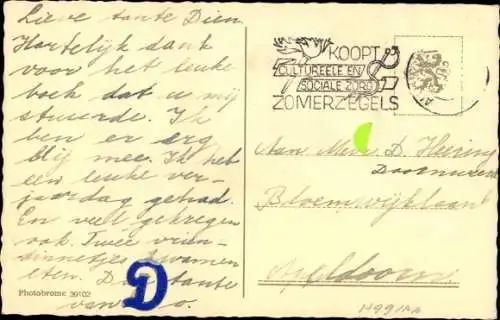 Lieve tante Dien.
Hartelijk dank
voor het leuke
boek dat u mij
stuurde. Ik
ben er erg
blij mee. Ik heb
een leuke ver-
jaardag gehad.
En veel gekregen
ook. Twee vrien-
dinnetjes kwamen
eten. D tante
van
D
Photobromc 39102
KOOPT
CULTUREELE EN
SOCIALE ZORG
ZOMERZEGELS
Aan Mevr. D. Heering
Bloemwijklaan
Apeldoorn